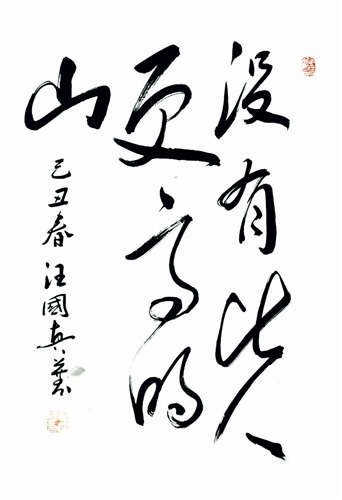 没有比人
更高的
山
己丑春汪國真书